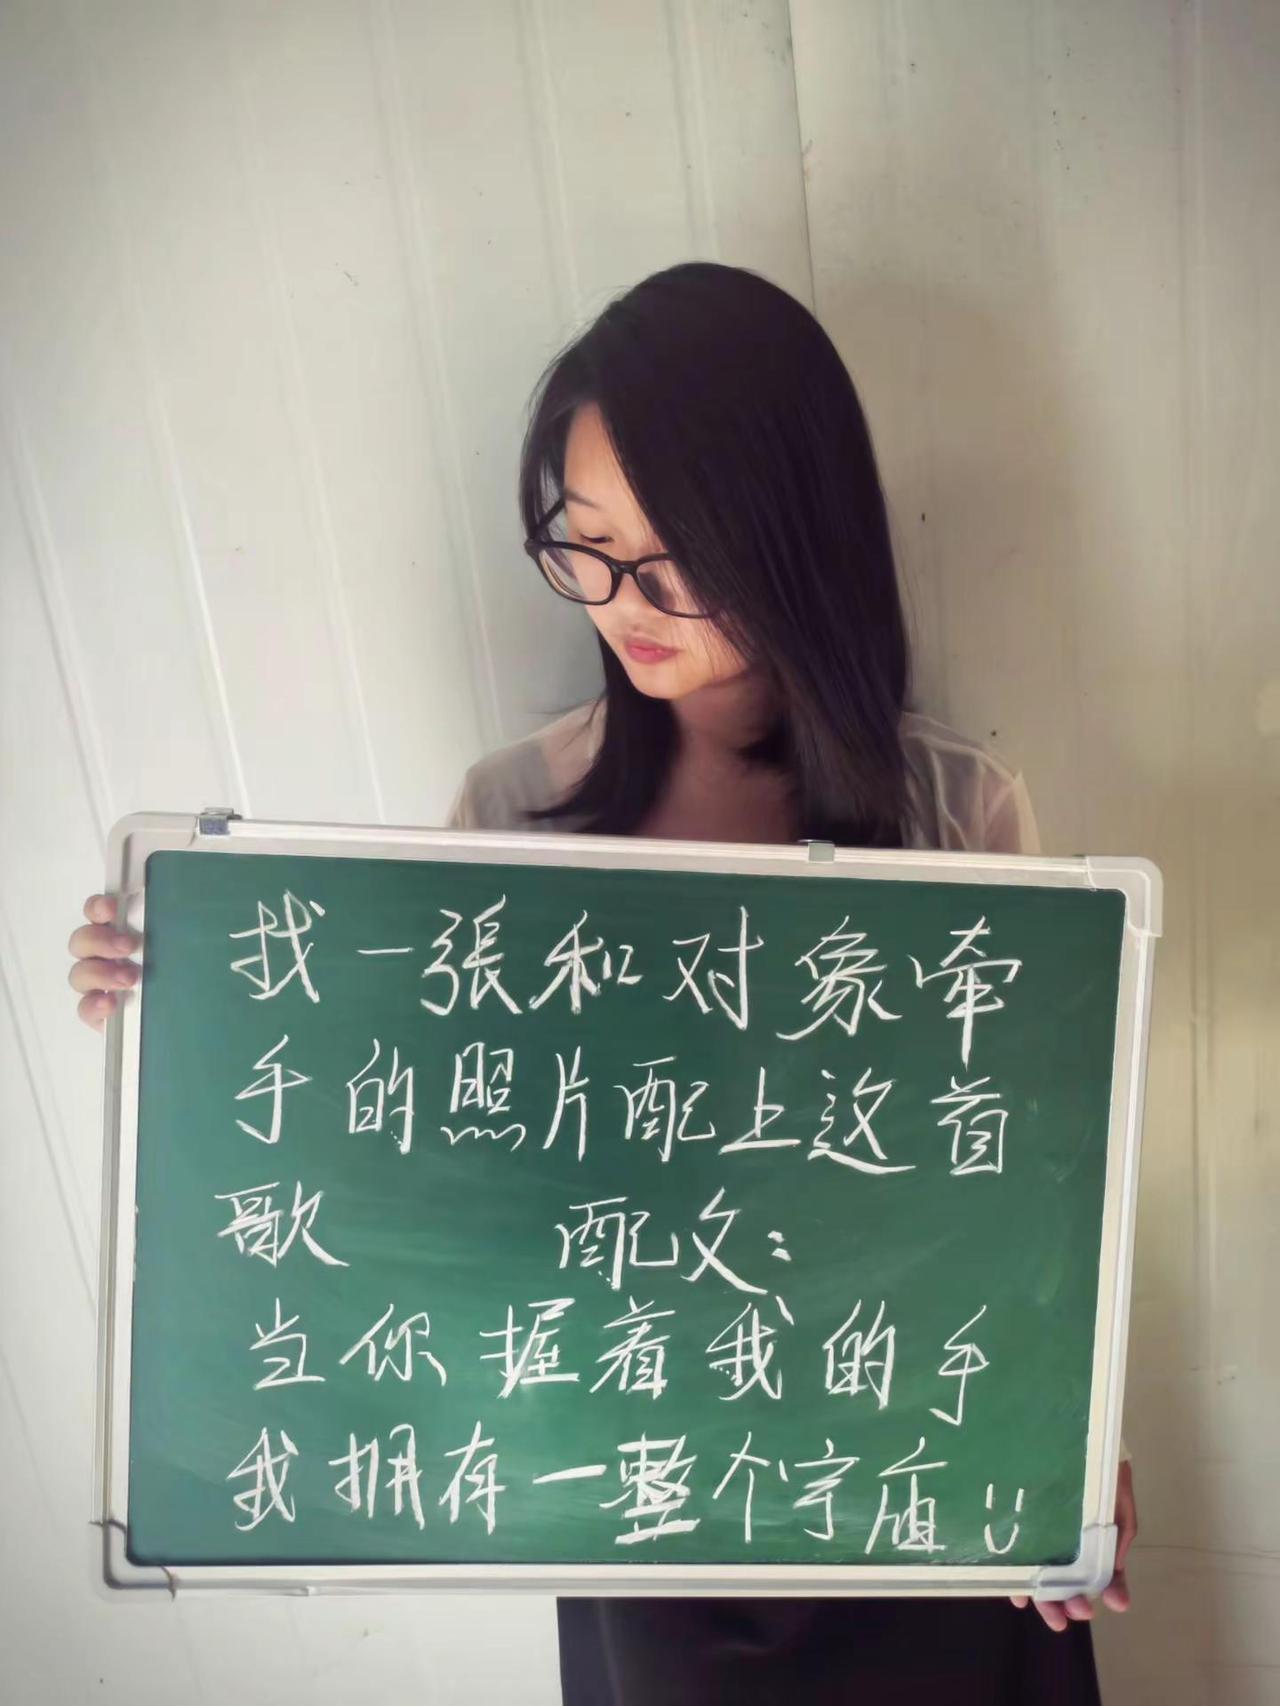 找一張和对象牵
手的照片配上这首
歌 配文:
当你握着我的手
我拥有一整个宇宙